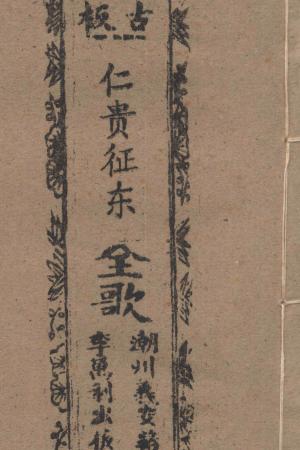 古板
仁贵征东
全歌
潮州義安路
李萬利出